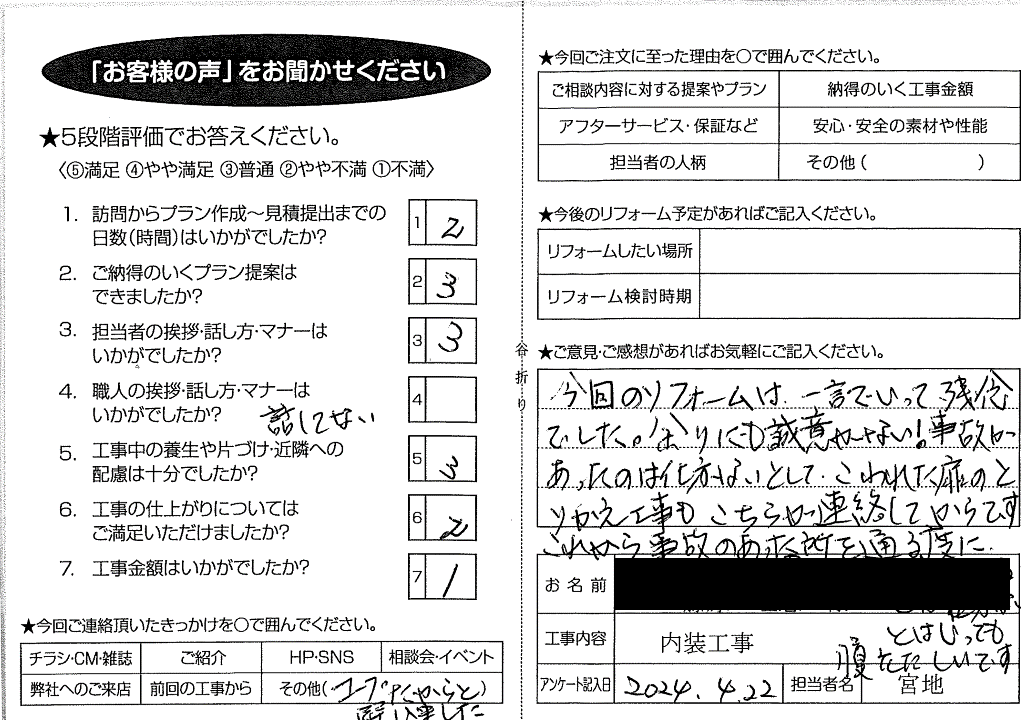 「お客様の声」をお聞かせください
★5段階評価でお答えください。
〈⑤満足 ④やや満足 ③普通 ②やや不満 ①不満〉
1. 訪問からプラン作成～見積提出までの
日数(時間)はいかがでしたか?
1 2
2. ご納得のいくプラン提案は
できましたか?
2 3
3. 担当者の挨拶・話し方・マナーは
いかがでしたか?
3 3
4. 職人の挨拶・話し方・マナーは
いかがでしたか? 話してない
4
5. 工事中の養生や片づけ・近隣への
配慮は十分でしたか?
5 3
6. 工事の仕上がりについては
ご満足いただけましたか?
6 2
7. 工事金額はいかがでしたか?
7 1
★今回ご連絡頂いたきっかけを〇で囲んでください。
チラシ・CM・雑誌 ご紹介 HP・SNS 相談会・イベント
弊社へのご来店 前回の工事から その他(コープだからと)
思いました
谷折り
★今回ご注文に至った理由を〇で囲んでください。
ご相談内容に対する提案やプラン 納得のいく工事金額
アフターサービス・保証など 安心・安全の素材や性能
担当者の人柄 その他( )
★今後のリフォーム予定があればご記入ください。
リフォームしたい場所
リフォーム検討時期
★ご意見・ご感想があればお気軽にご記入ください。
今回のリフォームは、一言でいって残念
でした。余りにも誠意がない!事故が
あったのは仕方ないとして、こわれた扉のと
りかえ工事もこちらから連絡してからです
これから事故のあった所を通る度に、
お名前
工事内容 内装工事
とはいっても
腹ただしいです
アンケート記入日 2024.4.22 担当者名 宮地